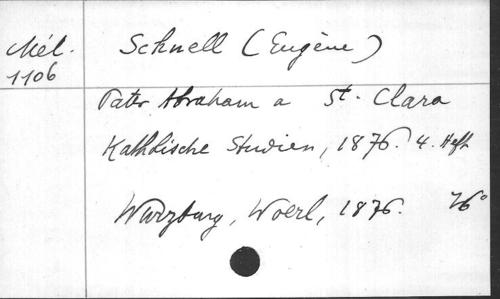 Mél. Schnell (Eugène)
1106
Pater Abraham a St. Clara
Katholische Studien, 1876. 4. Heft
Würzburg, Woerl, 1876.